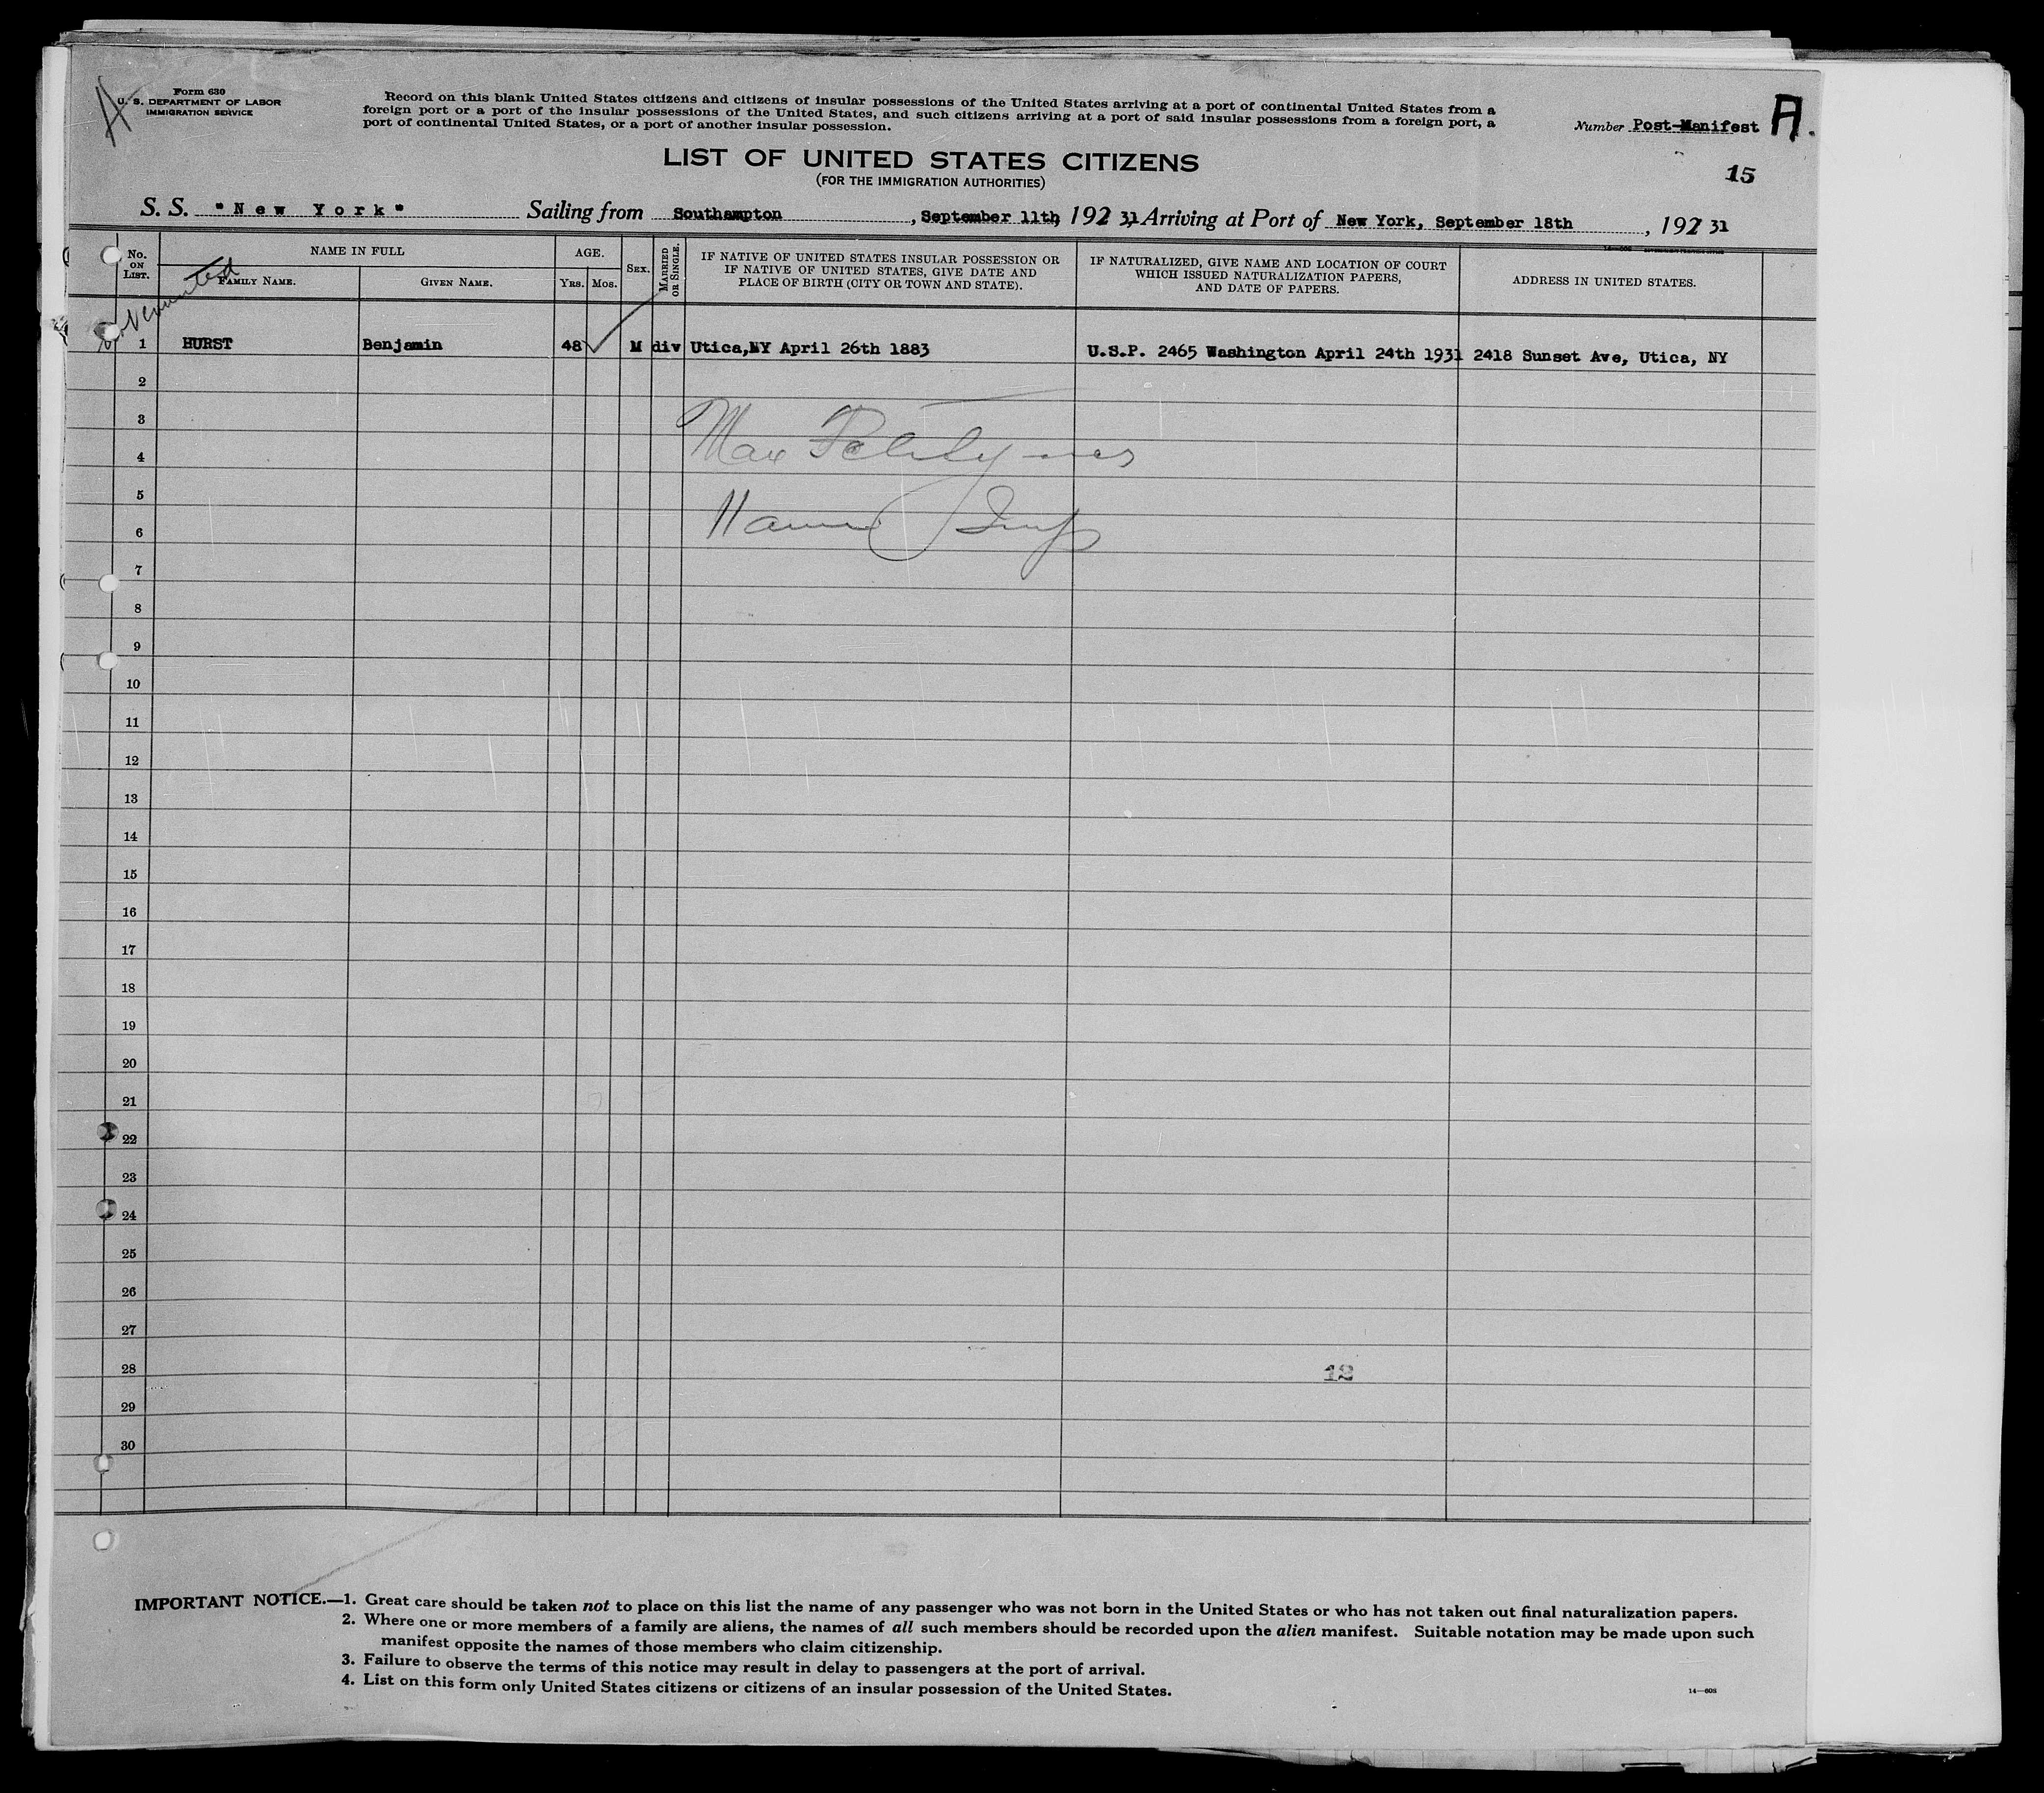 Form 630
U. S. DEPARTMENT OF LABOR
IMMIGRATION SERVICE
Record on this blank United States citizens and citizens of insular possessions of the United States arriving at a port of continental United States from a
foreign port or a port of the insular possessions of the United States, and such citizens arriving at a port of said insular possessions from a foreign port, a
port of continental United States, or a port of another insular possession.
Number Post-Manifest A.
15
LIST OF UNITED STATES CITIZENS
(FOR THE IMMIGRATION AUTHORITIES)
S. S. "New York" Sailing from Southampton, September 11th, 192 31, Arriving at Port of New York, September 18th, 192 31
No. ON LIST.
NAME IN FULL
FAMILY NAME.
GIVEN NAME.
AGE.
YRS. MOS.
SEX.
MARRIED OR SINGLE.
IF NATIVE OF UNITED STATES INSULAR POSSESSION OR
IF NATIVE OF UNITED STATES, GIVE DATE AND
PLACE OF BIRTH (CITY OR TOWN AND STATE).
IF NATURALIZED, GIVE NAME AND LOCATION OF COURT
WHICH ISSUED NATURALIZATION PAPERS,
AND DATE OF PAPERS.
ADDRESS IN UNITED STATES.
1 HURST Benjamin 48 M div Utica,NY April 26th 1883 U.S.P. 2465 Washington April 24th 1931 2418 Sunset Ave, Utica, NY
2
3
4
Max
5
6
7
8
9
10
11
12
13
14
15
16
17
18
19
20
21
22
23
24
25
26
27
28
12
29
30
IMPORTANT NOTICE.—1. Great care should be taken not to place on this list the name of any passenger who was not born in the United States or who has not taken out final naturalization papers.
2. Where one or more members of a family are aliens, the names of all such members should be recorded upon the alien manifest. Suitable notation may be made upon such
manifest opposite the names of those members who claim citizenship.
3. Failure to observe the terms of this notice may result in delay to passengers at the port of arrival.
4. List on this form only United States citizens or citizens of an insular possession of the United States.
14—608